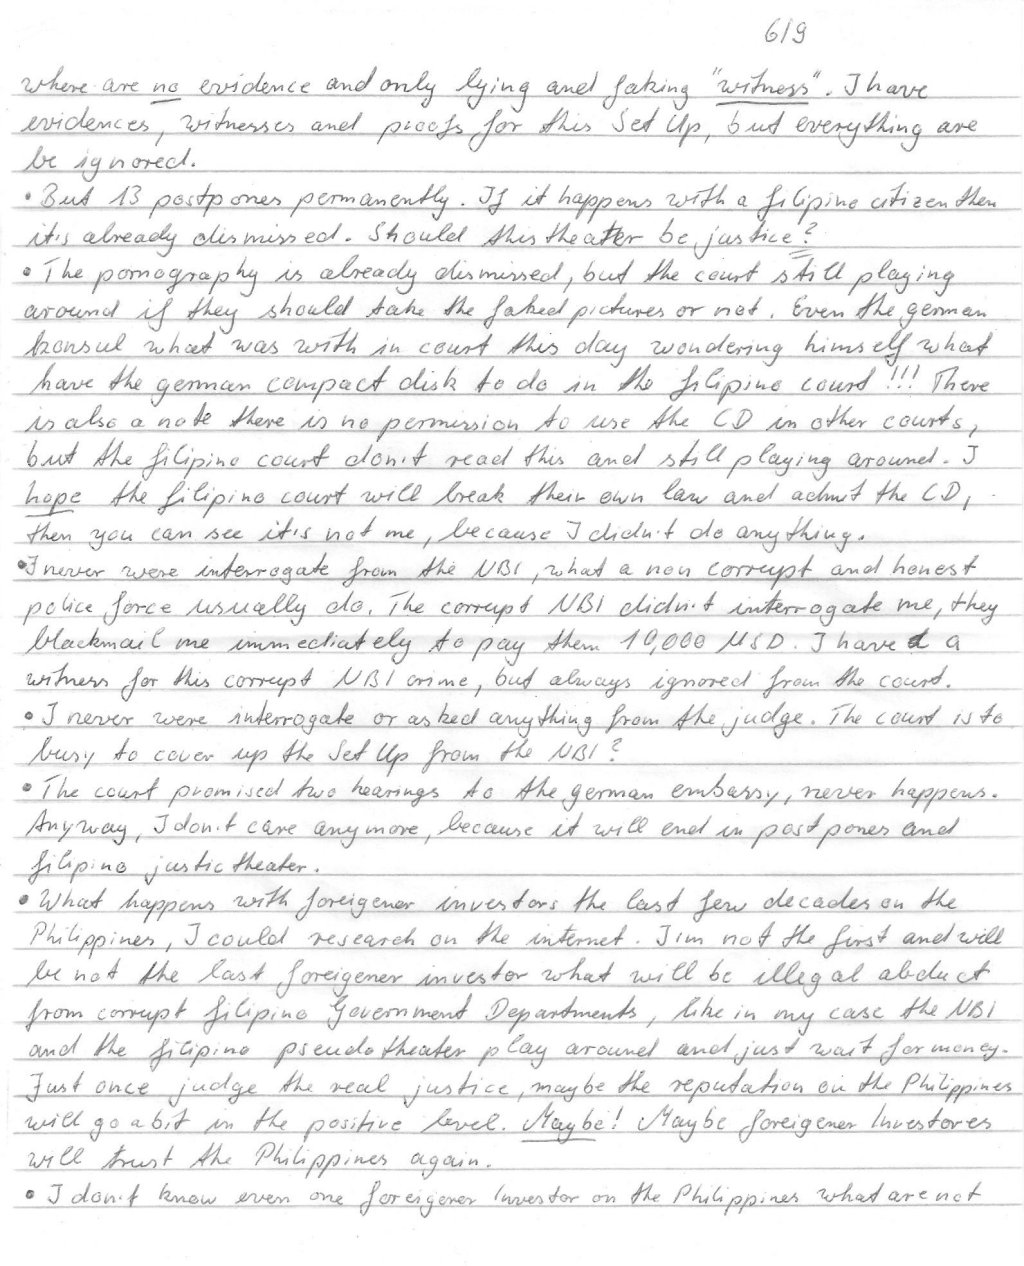 6/9
where are no evidence and only lying and faking "witness". I have
evidences, witnesses and proofs for this Set Up, but everything are
be ignored.
• But 13 postpones permanently. If it happens with a filipino citizen then
it's already dismissed. Should this theatter be justice?
• The pornography is already dismissed, but the court still playing
around if they should take the faked pictures or not. Even the german
konsul what was with in court this day wondering himself what
have the german compact disk to do in the filipino court!!! There
is also a note there is no permission to use the CD in other courts,
but the filipino court don't read this and still playing around. I
hope the filipino court will break their own law and admit the CD,
then you can see it's not me, because I didn't do anything.
• I never were interrogate from the NBI, what a non corrupt and honest
police force usually do. The corrupt NBI didn't interrogate me, they
blackmail me immediately to pay them 10,000 USD. I have a
witness for this corrupt NBI crime, but always ignored from the court.
• I never were interrogate or asked anything from the judge. The court is to
busy to cover up the Set Up from the NBI?
• The court promised two hearings to the german embassy, never happens.
Anyway, I don't care anymore, because it will end in postpones and
filipino justic theater.
• What happens with foreigener investors the last few decades on the
Philippines, I could research on the internet. I'm not the first and will
be not the last foreigener investor what will be illegal abduct
from corrupt filipino Government Departments, like in my case the NBI
and the filipino pseudotheater play around and just wait for money.
Just once judge the real justice, maybe the reputation on the Philippines
will go a bit in the positive level. Maybe! Maybe foreigener Investores
will trust the Philippines again.
• I don't know even one foreigener Investor on the Philippines what are not